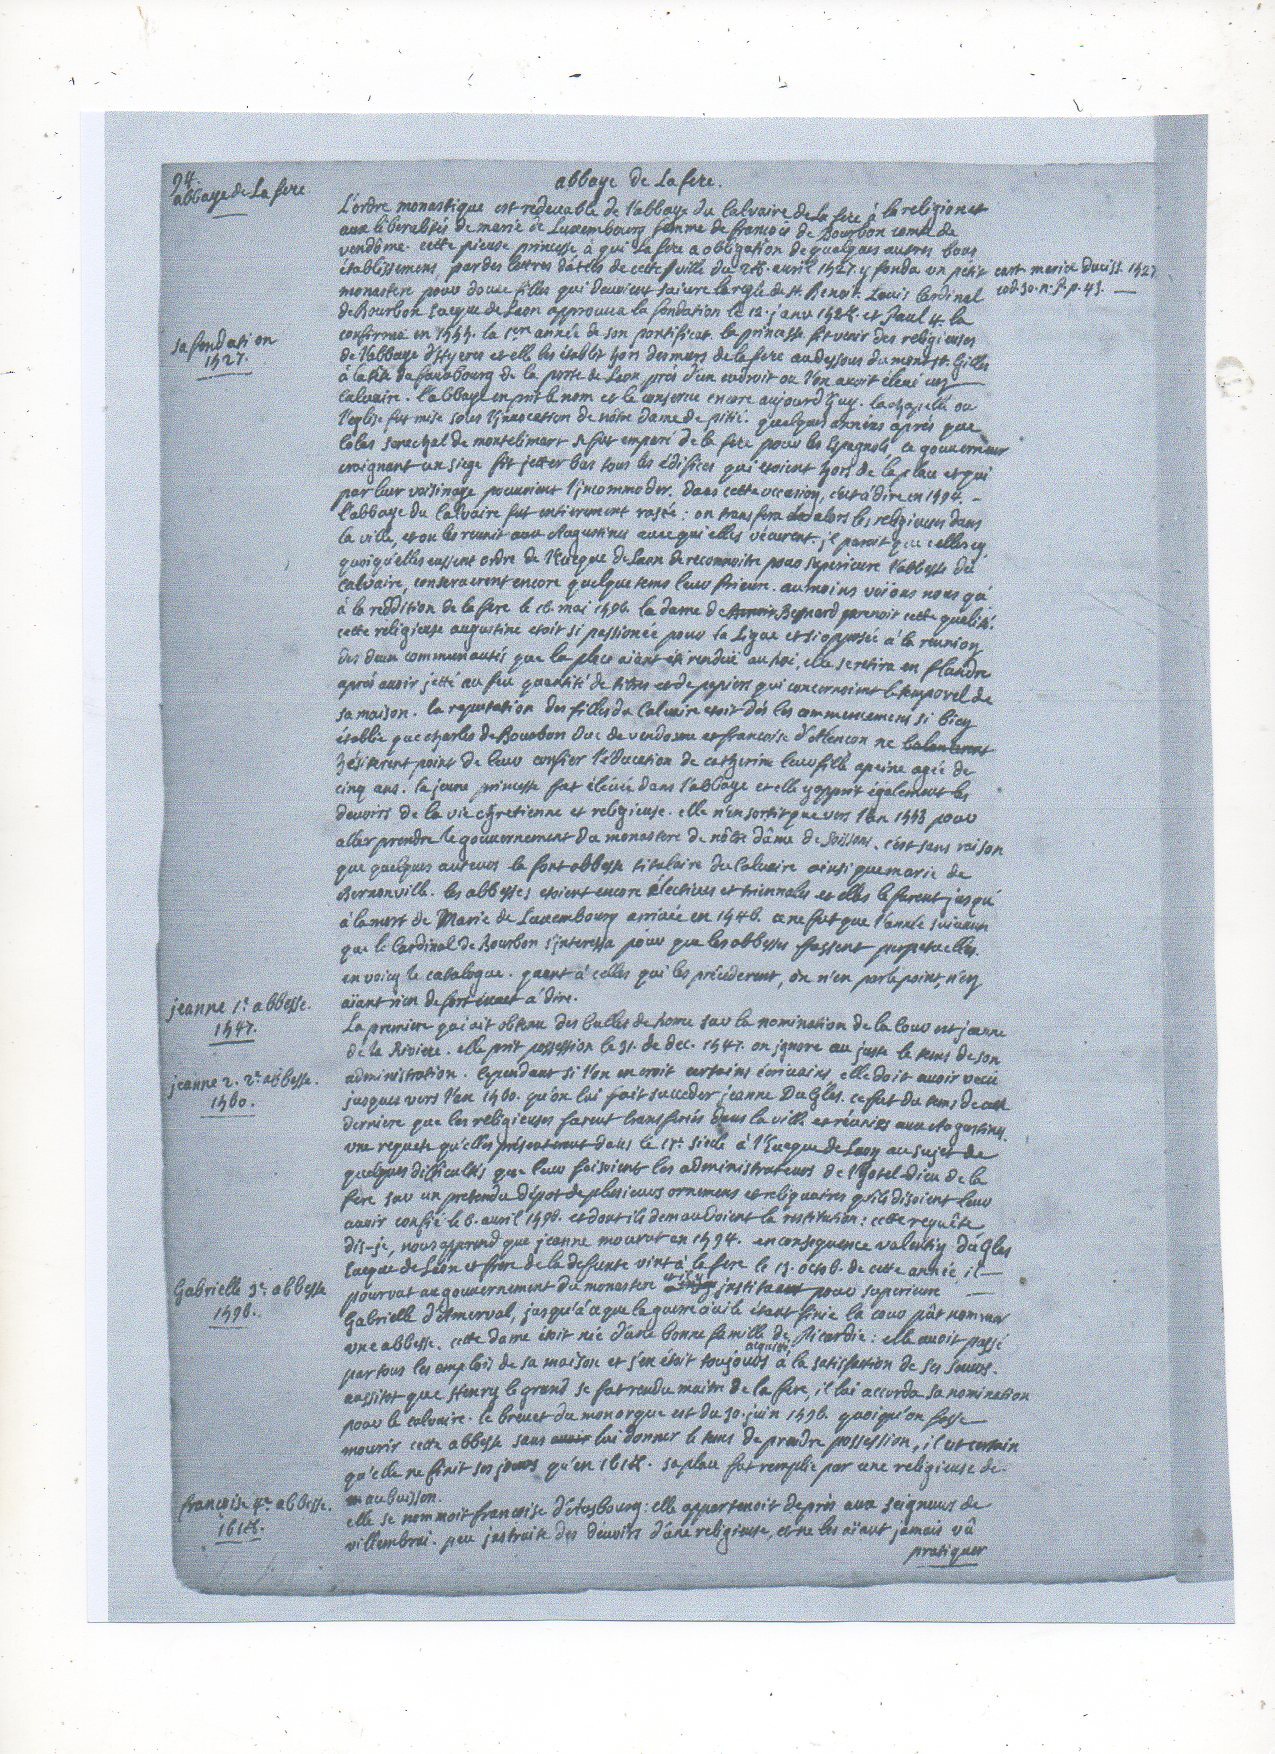 94.
abbaye de La fere
abbaye de La fere.
L'ordre monastique est redevable de l'abbaye du Calvaire de la fere à la religion et
aux liberalités de marie de Luxembourg femme de francois de Bourbon comte de
vendôme. cette pieuse princesse à qui la fere a obligation de quelques autres bons
établissemens, par des lettres datées de cette ville du 28. avril 1527. y fonda un petit
cart. mariæ duciss. 1527
monastere pour douze filles qui devoient suivre la regle de St. Benoit. Louis Cardinal
cod. 30. n. f. p. 43.
de Bourbon Eveque de Laon approuva la fondation le 12. janv. 1528. et Paul 4. la
confirma en 1555. la 1ere année de son pontificat. la princesse fit venir des religieuses
sa fondation
1527.
de l'abbaye d'Hyeres et elle les établit hors des murs de la fere au dessous du mont St. Gilles
à la tête du fauxbourg de la porte de Laon prés d'un endroit ou l'on avoit élevé un
calvaire. l'abbaye en prit le nom et le conserve encore aujourd'huy. la chapelle ou
l'eglise fut mise sous l'invocation de nôtre dame de pitié. quelques années aprés que
Colas senechal de montelimart se fut emparé de la fere pour les Espagnols, ce gouverneur
craignant un siege fit jetter bas tous les édifices qui etoient hors de la place et qui
par leur voisinage pouvoient l'incommoder. dans cette occasion, c'est à dire en 1594.
l'abbaye du Calvaire fut entierement rasée: on transfera alors les religieuses dans
la ville, et on les reunit aux Augustines avec qui elles vécurent. il paroit que celles cy,
quoiqu'elles eussent ordre de l'Eveque de Laon de reconnoitre pour superieure l'abbesse du
Calvaire, conserverent encore quelque tems leur Prieure. au moins voïons nous qu'
à la reddition de la fere le 16. mai 1596. la dame de Besnard prenoit cette qualité.
cette religieuse augustine etoit si passionée pour la Ligue et si opposée à la réunion
des deux communautés que la place aiant été rendue au Roi, elle se retira en flandre
aprés avoir jetté au feu quantité de titres et de papiers qui concernoient le temporel de
sa maison. la reputation des filles du Calvaire etoit dés les commencemens si bien
établie que charles de Bourbon Duc de vendosme et francoise d'Alencon ne balancerent
hésiterent point de leur confier l'éducation de catherine leur fille apeine agée de
cinq ans. la jeune princesse fut élévée dans l'abbaye et elle y apprit également les
devoirs de la vie chretienne et religieuse. elle n'en sortit que vers l'an 1553 pour
aller prendre le gouvernement du monastere de nôtre dâme de Soissons. c'est sans raison
que quelques auteurs la font abbesse titulaire du Calvaire ainsi que marie de
Bernonville. les abbesses etoient encore électives et triennales et elles le furent jusqu'
à la mort de Marie de Luxembourg arrivée en 1546. ce ne fut que l'année suivante
que le Cardinal de Bourbon s'interessa pour que les abbesses fussent perpetuelles.
en voicy le catalogue. quant à celles qui les précederent, on n'en parle point, n'en
aïant rien de fort exact à dire.
jeanne 1e. abbesse.
1547.
La premiere qui ait obtenu des bulles de Rome sur la nomination de la Cour est jeanne
de la Riviere. elle prit possession le 31. de dec. 1547. on ignore au juste le tems de son
jeanne 2. 2e abbesse.
1560.
administration. Cependant si l'on en croit certains écrivains, elle doit avoir vecu
jusques vers l'an 1560. qu'on lui fait succeder jeanne Du Glas. ce fut du tems de cette
derniere que les religieuses furent transferées dans la ville et réunies aux Augustines.
une requete qu'elles presenterent dans le 17e. siecle à l'Eveque de Laon au sujet de
quelques difficultés que leur faisoient les administrateurs de l'hotel Dieu de la
fere sur un pretendu dépot de plusieurs ornemens et reliquaires qu'ils disoient leur
avoir confié le 6. avril 1596. et dont ils demandoient la restitution: cette requête
dis-je, nous apprend que jeanne mourut en 1594. en consequence valentin duGlas
Eveque de Léon et frere de la defunte vint à la fere le 13. octob. de cette année il
Gabrielle 3e. abbesse
1596.
pourvut au gouvernement du monastere institua pour superieure
Gabrielle d'Amerval, jusqu'à ce que la guerre civile étant finie la cour pût nommer
une abbesse. cette dame étoit née d'une bonne famille de Picardie: elle avoit passé
par tous les emplois de sa maison et s'en étoit toujours acquitée à la satisfaction de ses soeurs.
aussitot que Henry le grand se fut rendu maitre de la fere, il lui accorda sa nomination
pour le calvaire. le brevet du monarque est du 30. juin 1596. quoiqu'on fasse
mourir cette abbesse sans avoir lui donner le tems de prendre possession, il est certain
qu'elle ne finit ses jours qu'en 1618. sa place fut remplie par une religieuse de
maubuisson.
francoise 4e. abbesse.
1618.
elle se nommoit francoise d'Arbourg: elle appartenoit de prés aux seigneurs de
villembrai. peu instruite des dévoirs d'une religieuse, et ne les aïant jamais vû
pratiquer